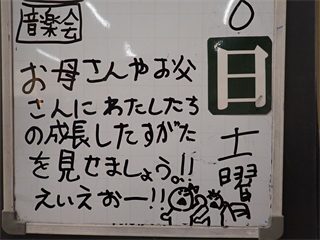 音楽会
お母さんやお父
さんにわたしたち
の成長したすがた
を見せましょう。!!
えいえおー!!
0
日
土曜